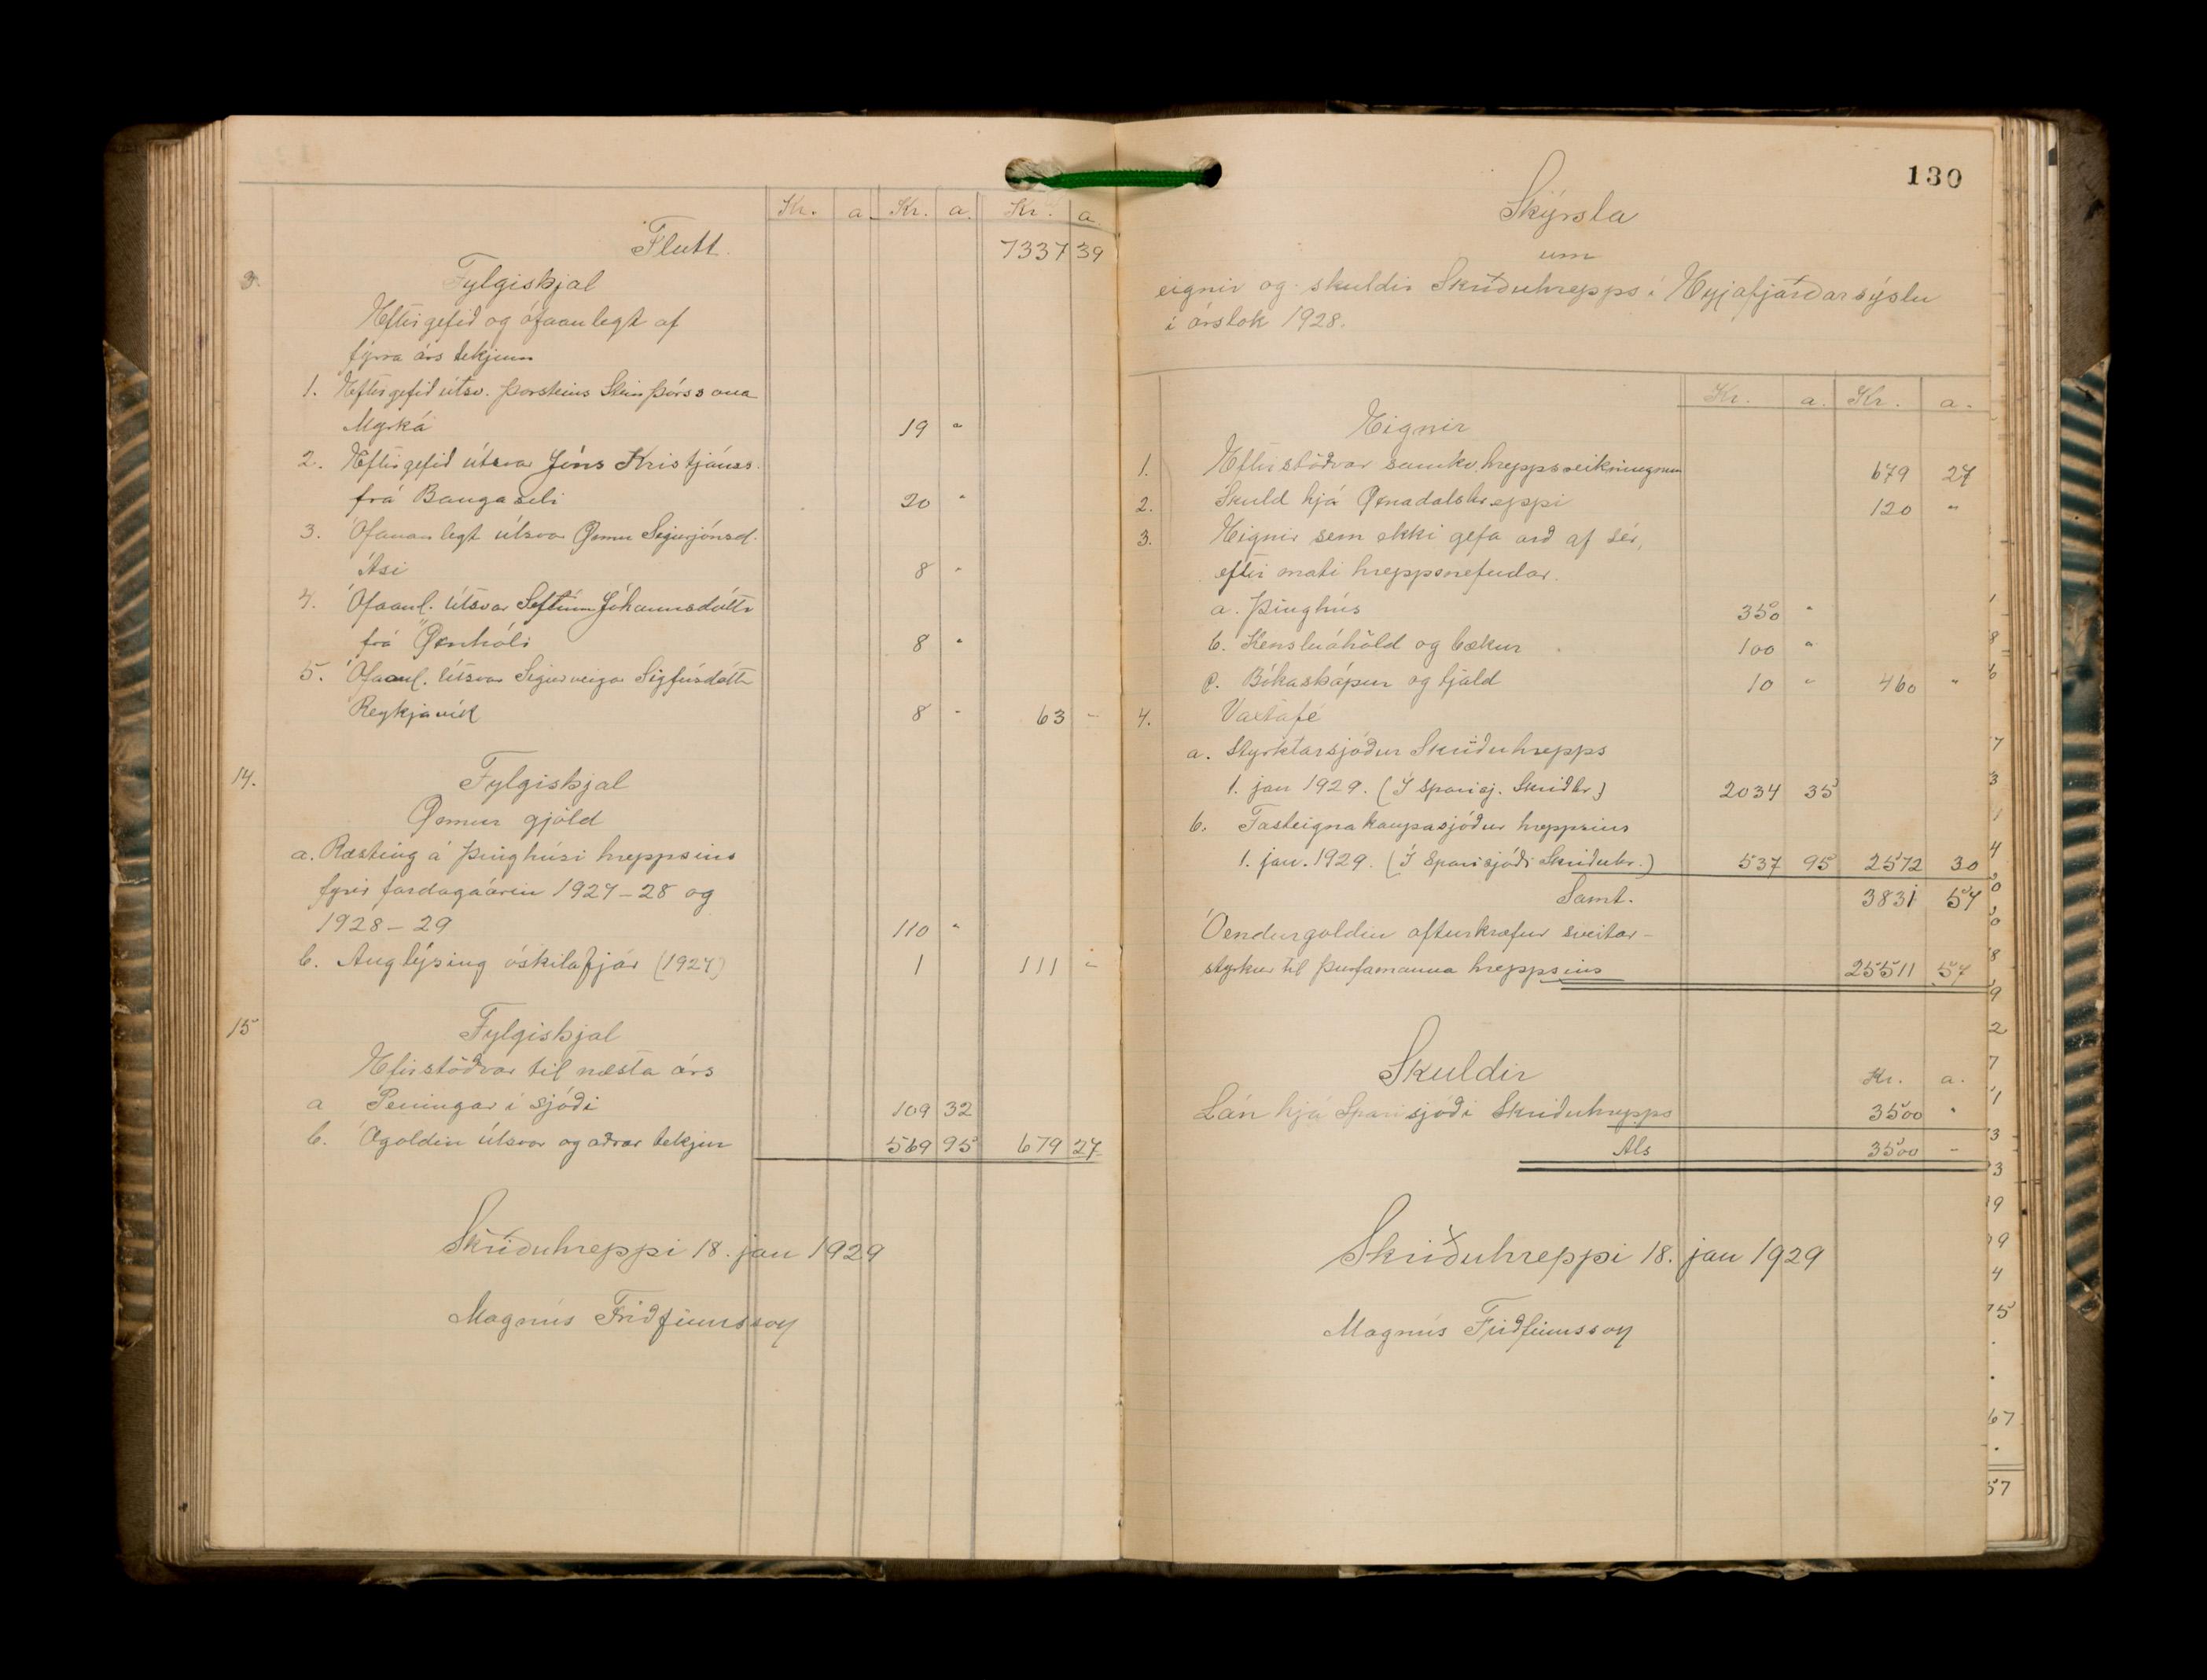 Kr. a. Kr. a. Kr. a.
Flutt. 7337 39
3. Fylgiskjal
Eftirgefið og ófáanlegt af
fyrra árs tekjum
1. Eftirgefið útsv. Þorsteins Steinþórssona
Myrká 19 "
2. Eftirgefið útsvar Jóns Kristjánss.
frá Baugaseli 20 "
3. Ófáanlegt útsvar Önnu Sigurjónsd.
Ási 8 "
4. Ófáanl. útsvar Jóhannsdóttr
frá Öxnhóli 8 "
5. Ófáanl. útsvar Sigurveigar Sigfúsdóttr
Reykjavík 8 - 63 -
14. Fylgiskjal
Önnur gjöld
a. Ræsting á þinghúsi hreppsins
fyrir fardagaárin 1927-28 og
1928-29 110 "
b. Auglýsing óskilafjár (1927) 1 111 "
15 Fylgiskjal
Efirstöðvar til næsta árs
a Peningar í sjóði 109 32
b. Ógoldin útsvör og aðrar tekjur 569 95 679 27
Skriðuhreppi 18. jan 1929
Magnús Friðfinnsson
130
Skýrsla
um
eignir og skuldir Skriðuhrepps í Eyjafjarðarsýslu
í árslok 1928.
Kr. a. Kr. a.
Eignir
1. Eftirstöðvar samkv. hreppsreikningnum 679 27
2. Skuld hjá Öxnadalshreppi 120 "
3. Eignir sem ekki gefa arð af sér,
eftir mati hreppsnefndar.
a. Þinghús 350 "
b. Kensluáhöld og bækur 100 "
c. Bókaskápur og tjald 10 " 460 "
4. Vaxtafé
a. Styrktarsjóður Skriðuhrepps
1. jan 1929. (Í sparisj. Skriðhr.) 2034 35
b. Fasteignakaupasjóður hreppsins
1. jan. 1929. (Í Sparisjóði Skriðuhr.) 537 95 2572 30
Samt. 3831 57
Óendurgoldin afturkræfur sveitar-
styrkur til þurfamanna hreppsins 25511 57
Skuldir Kr. a.
Lán hjá Sparisjóði Skriðuhrepps 3500 "
Als 3500 -
Skriðuhreppi 18. jan 1929
Magnús Friðfinnsson